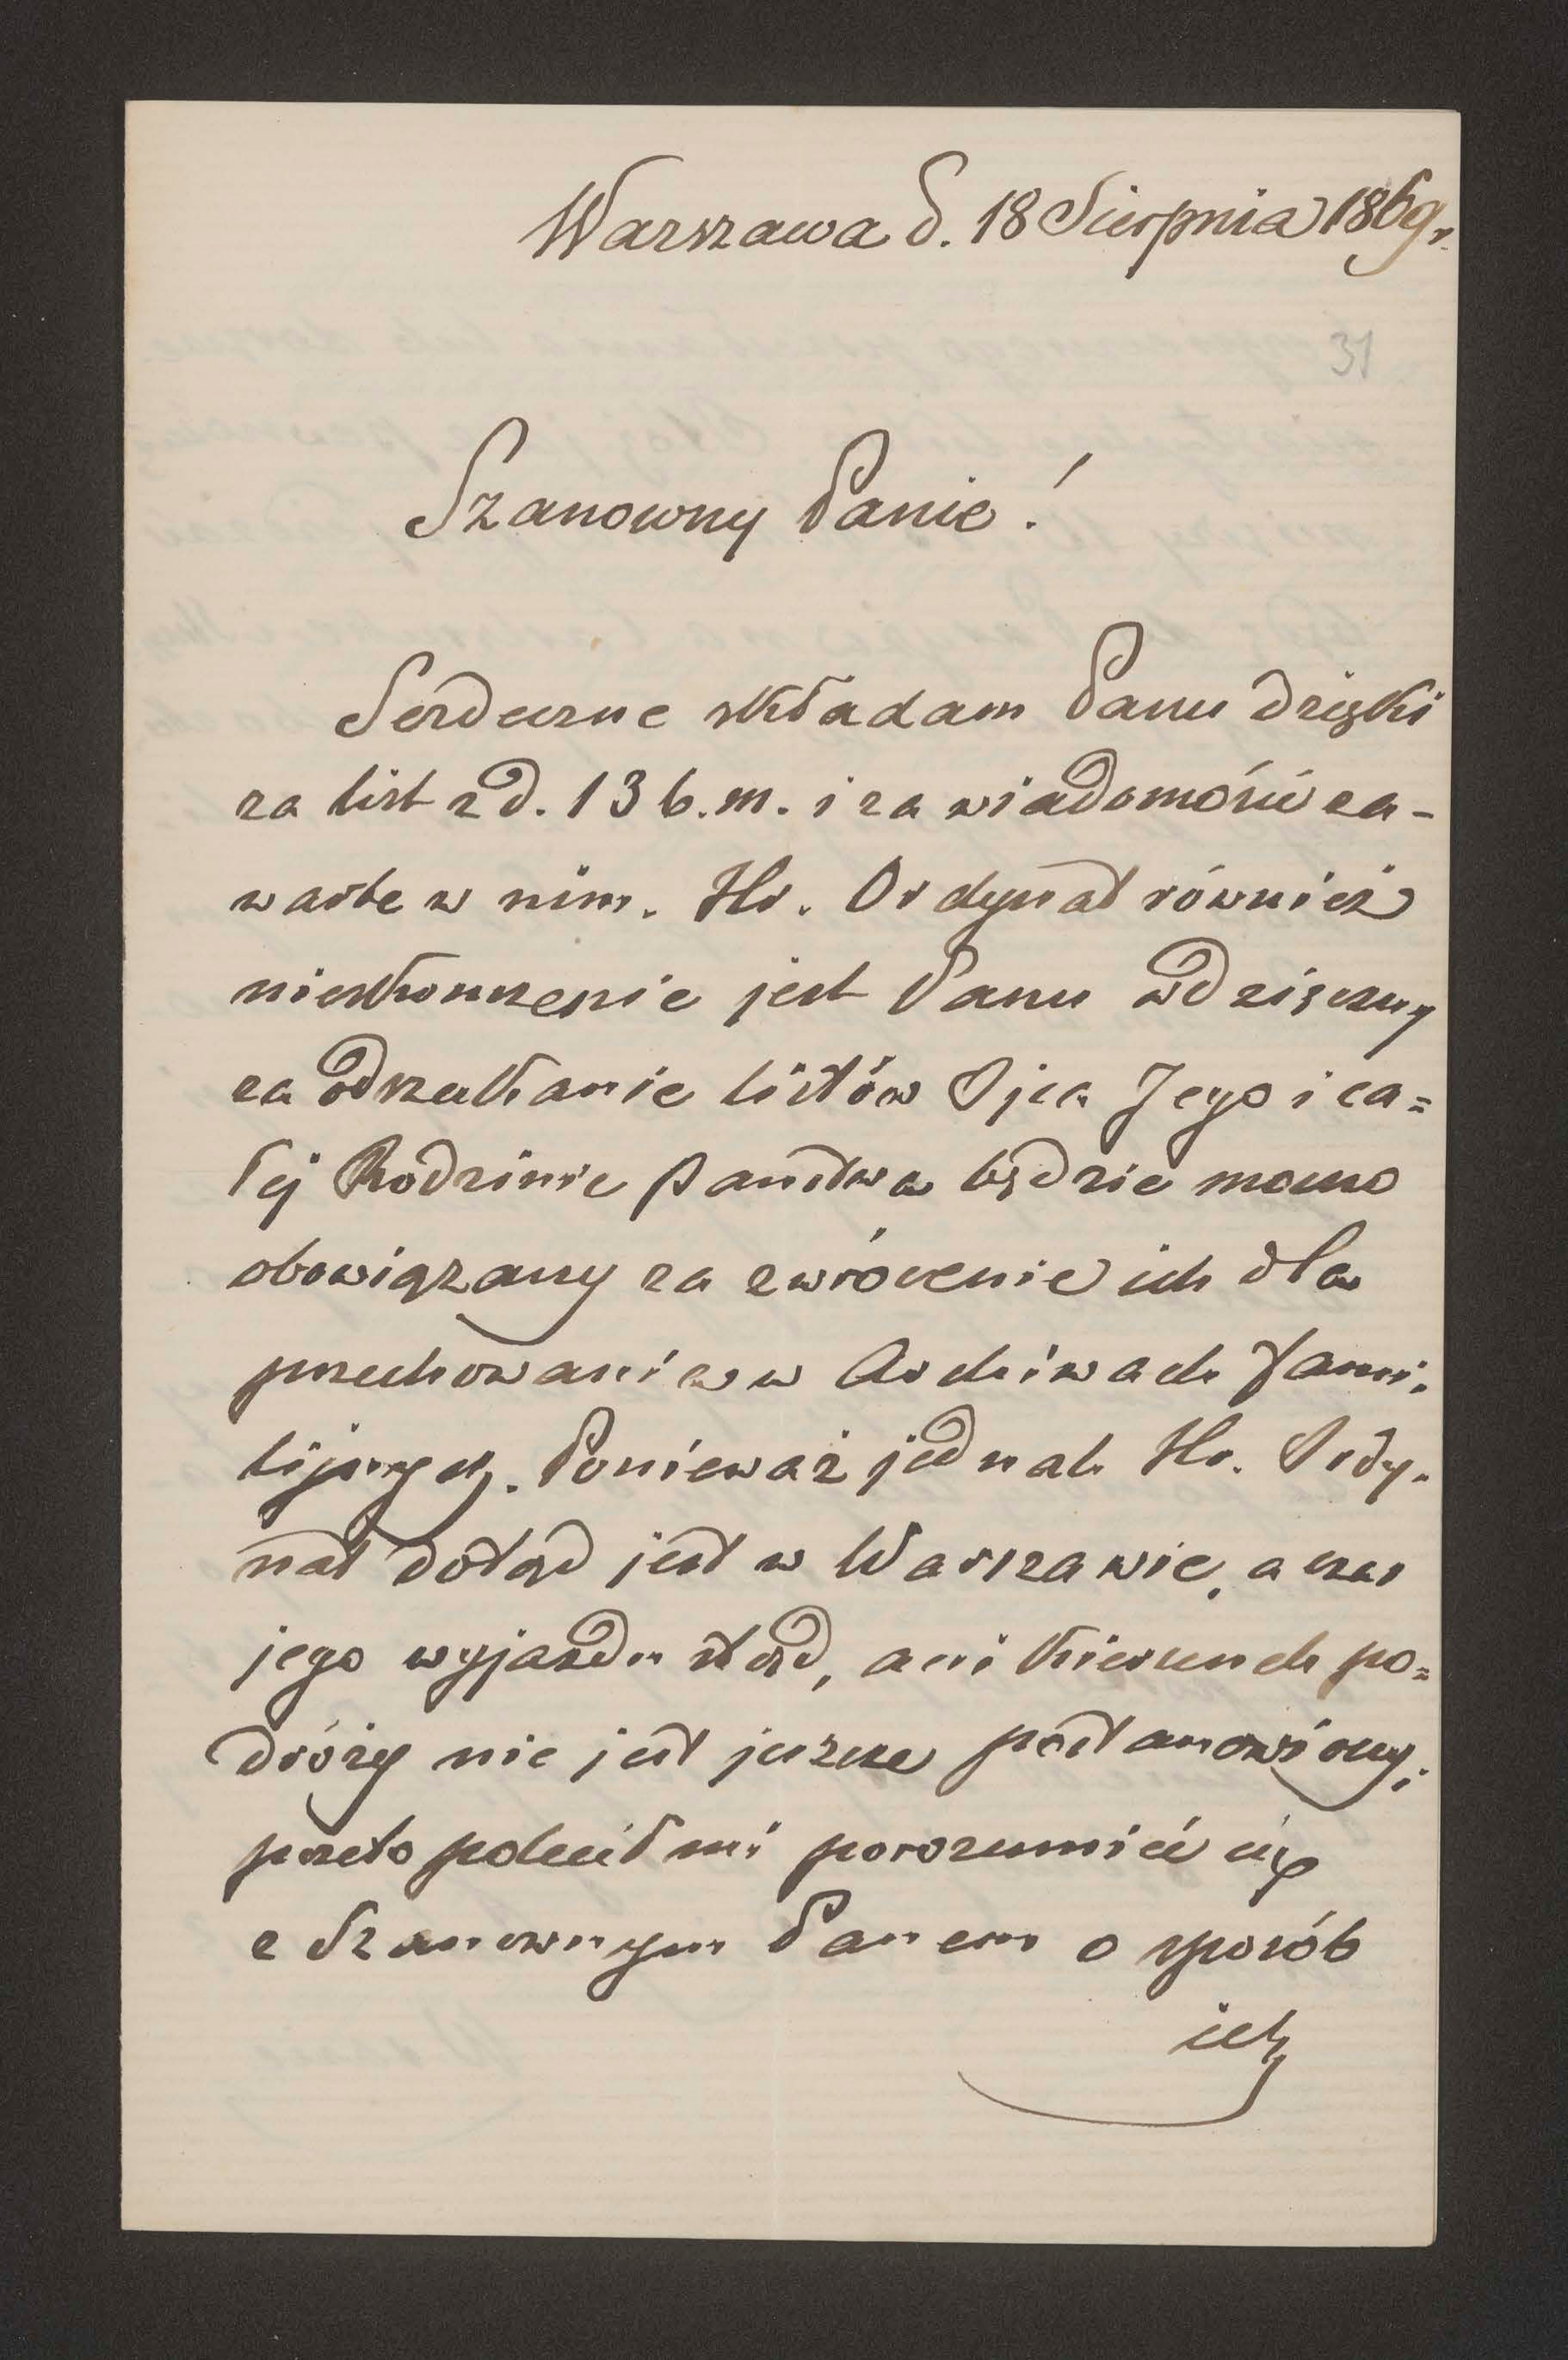 Warszawa d. 18 Sierpnia 1869 r.
31
Szanowny Panie!
Serdeczne składam Panu dzięki
za list z d. 13 b.m. i za wiadomości za-
warte w nim. Hr. Ordynat również
nieskończenie jest Panu wdzięczny
za odszukanie listów Ojca Jego i ca=
łej Rodzinie Państwa będzie mocno
obowiązany za zwrócenie ich dla
przechowania w Archiwach fami-
lijnych. Ponieważ jednak Hr. Ordy-
nat dotąd jest w Warszawie, a czas
jego wyjazdu stąd, ani kierunek po=
dróży nie jest jeszcze postanowiony;
przeto polecił mi porozumieć się
z Szanownym Panem o sposób
ich